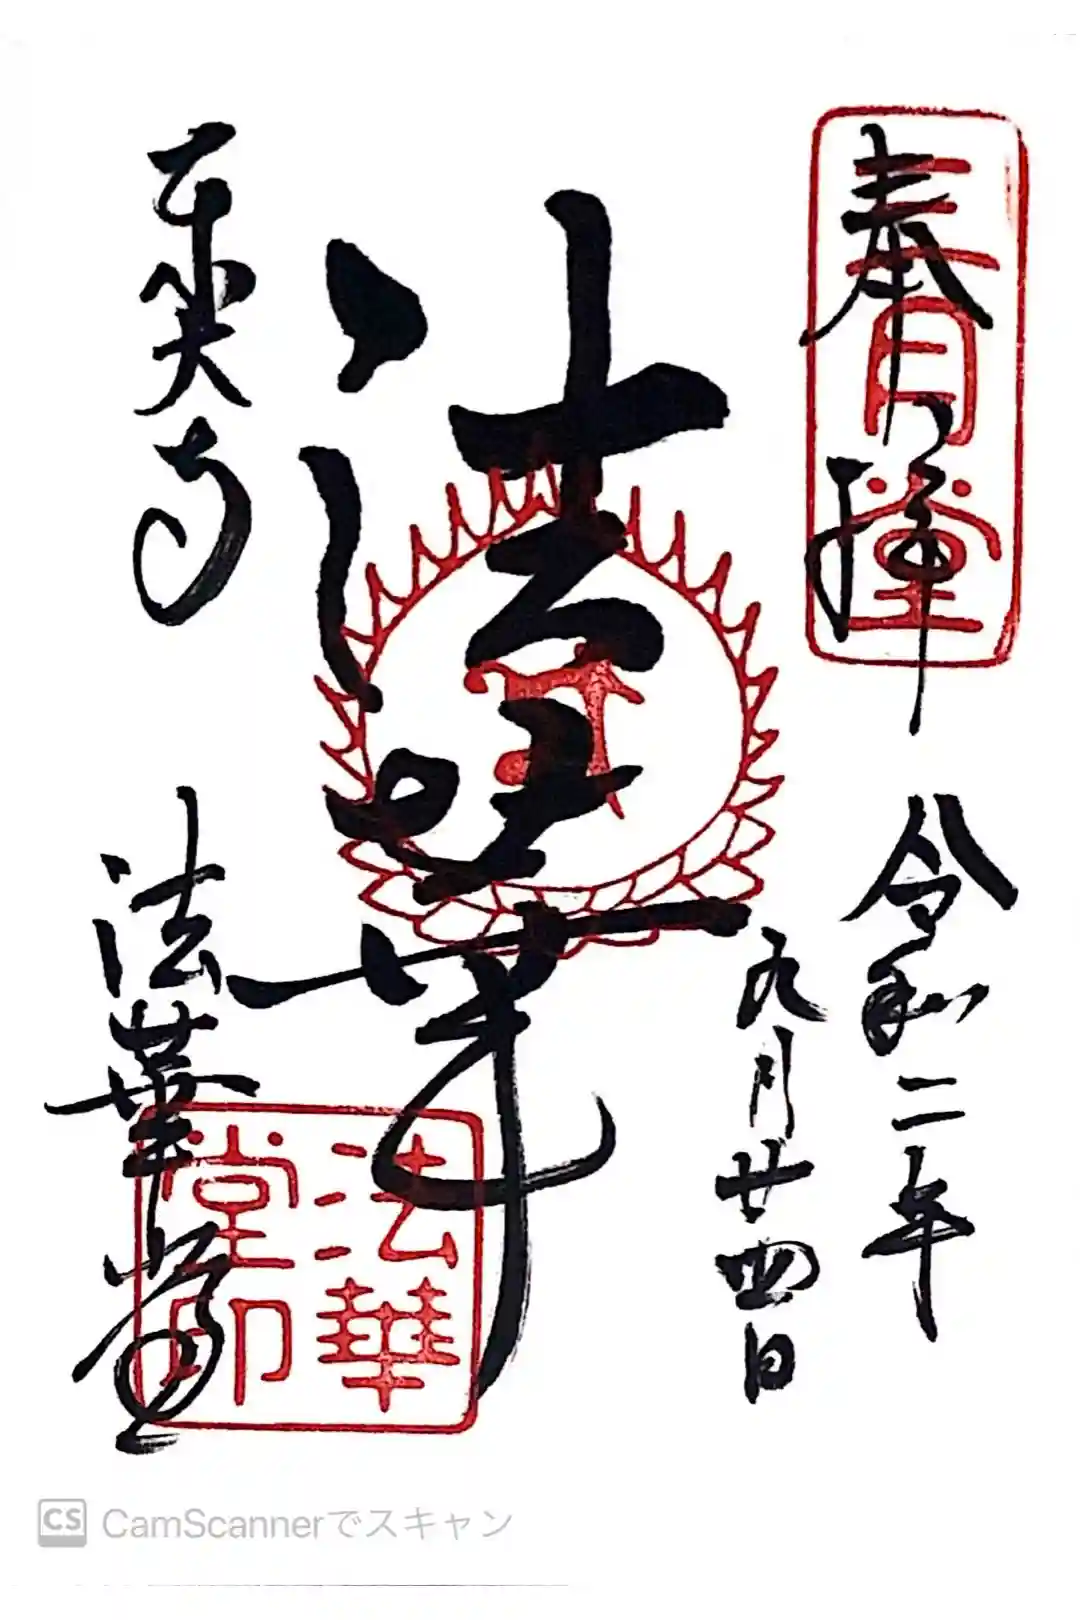 奉拝
三月堂
令和二年
九月廿四日
法華
東大寺
法華堂
法華堂印
CamScannerでスキャン